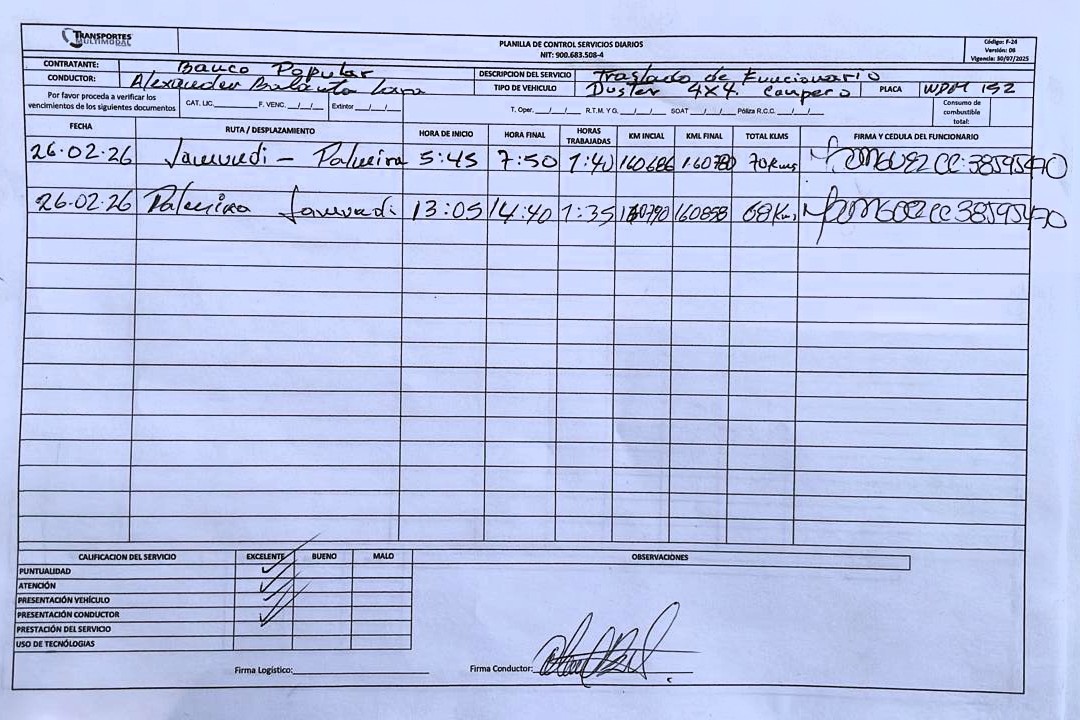 TRANSPORTES
MULTIMODAL
PLANILLA DE CONTROL SERVICIOS DIARIOS
NIT: 900.683.508-4
Código: F-24
Versión: 08
Vigencia: 30/07/2025
CONTRATANTE: Banco Popular
DESCRIPCION DEL SERVICIO Traslado de Funcionario
CONDUCTOR: Alexander
TIPO DE VEHICULO Duster 4X4. Campero PLACA WDM 152
Por favor proceda a verificar los
vencimientos de los siguientes documentos
CAT. LIC.________ F. VENC. __/__/__ Extintor __/__/__ T. Oper.___/___/___ R.T.M. Y G.___/___/___ SOAT ___/___/___ Póliza R.C.C. ___/___/___
Consumo de
combustible
total:
FECHA RUTA / DESPLAZAMIENTO HORA DE INICIO HORA FINAL HORAS TRABAJADAS KM INCIAL KML FINAL TOTAL KLMS FIRMA Y CEDULA DEL FUNCIONARIO
26.02.26 Jamundi - Palmira 5:45 7:50 1:40 160686 160780 70Kms CC. 38595470
26.02.26 Palmira Jamundi 13:05 14:40 1:35 160790 160858 68Km, CC 38595470
CALIFICACION DEL SERVICIO EXCELENTE BUENO MALO OBSERVACIONES
PUNTUALIDAD
ATENCIÓN
PRESENTACIÓN VEHÍCULO
PRESENTACIÓN CONDUCTOR
PRESTACIÓN DEL SERVICIO
USO DE TECNÓLOGIAS
Firma Logístico:____________ Firma Conductor:____________